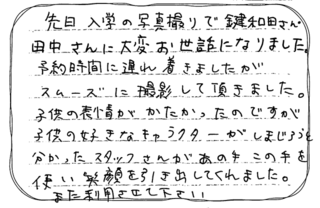 先日 入学の写真撮りで 鍵和田さん
田中さんに大変お世話になりました。
予約時間に遅れ着きましたが
スムーズに撮影して頂きました。
子供の表情がかたかったのですが
子供の好きなキャラクターがしまじろうと
分かったスタッフさんがあの手この手を
使い笑顔を引き出してくれました。
また利用させて下さい